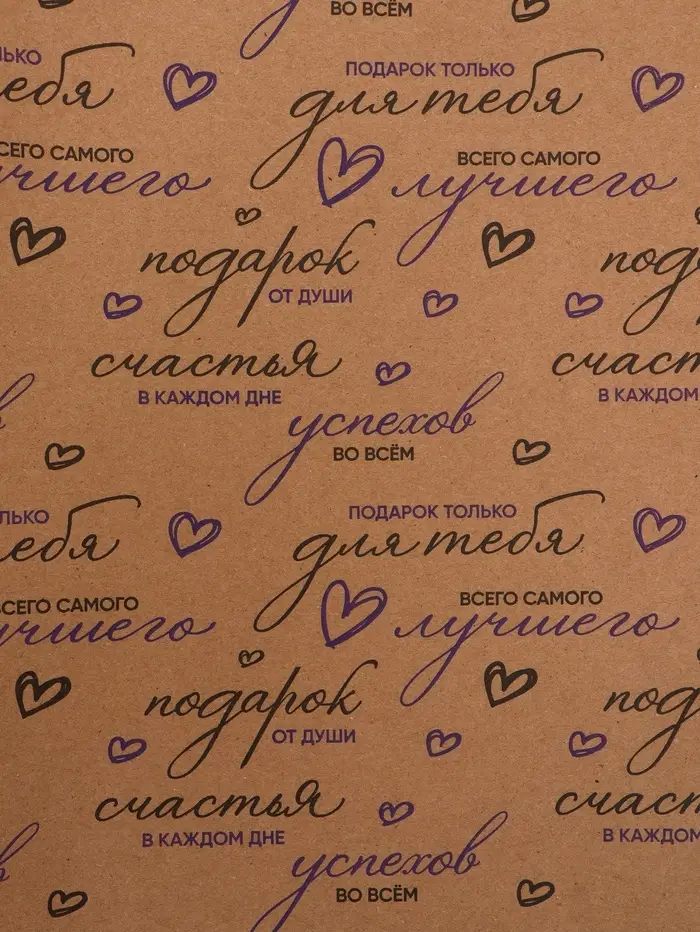 ВО ВСЁМ
ЛЬКО
ПОДАРОК ТОЛЬКО
ебя
для тебя
СЕГО САМОГО
ВСЕГО САМОГО
учшего
лучшего
подарок
под
ОТ ДУШИ
счастья
счаст
В КАЖДОМ ДНЕ
В КАЖДОМ
в
успехов
ВО ВСЁМ
ЛЬКО
ПОДАРОК ТОЛЬКО
ебя
для тебя
СЕГО САМОГО
ВСЕГО САМОГО
учшего
лучшего
подарок
под
ОТ ДУШИ
счастья
счаст
В КАЖДОМ ДНЕ
В КАЖДОМ
в
успехов
ВО ВСЁМ